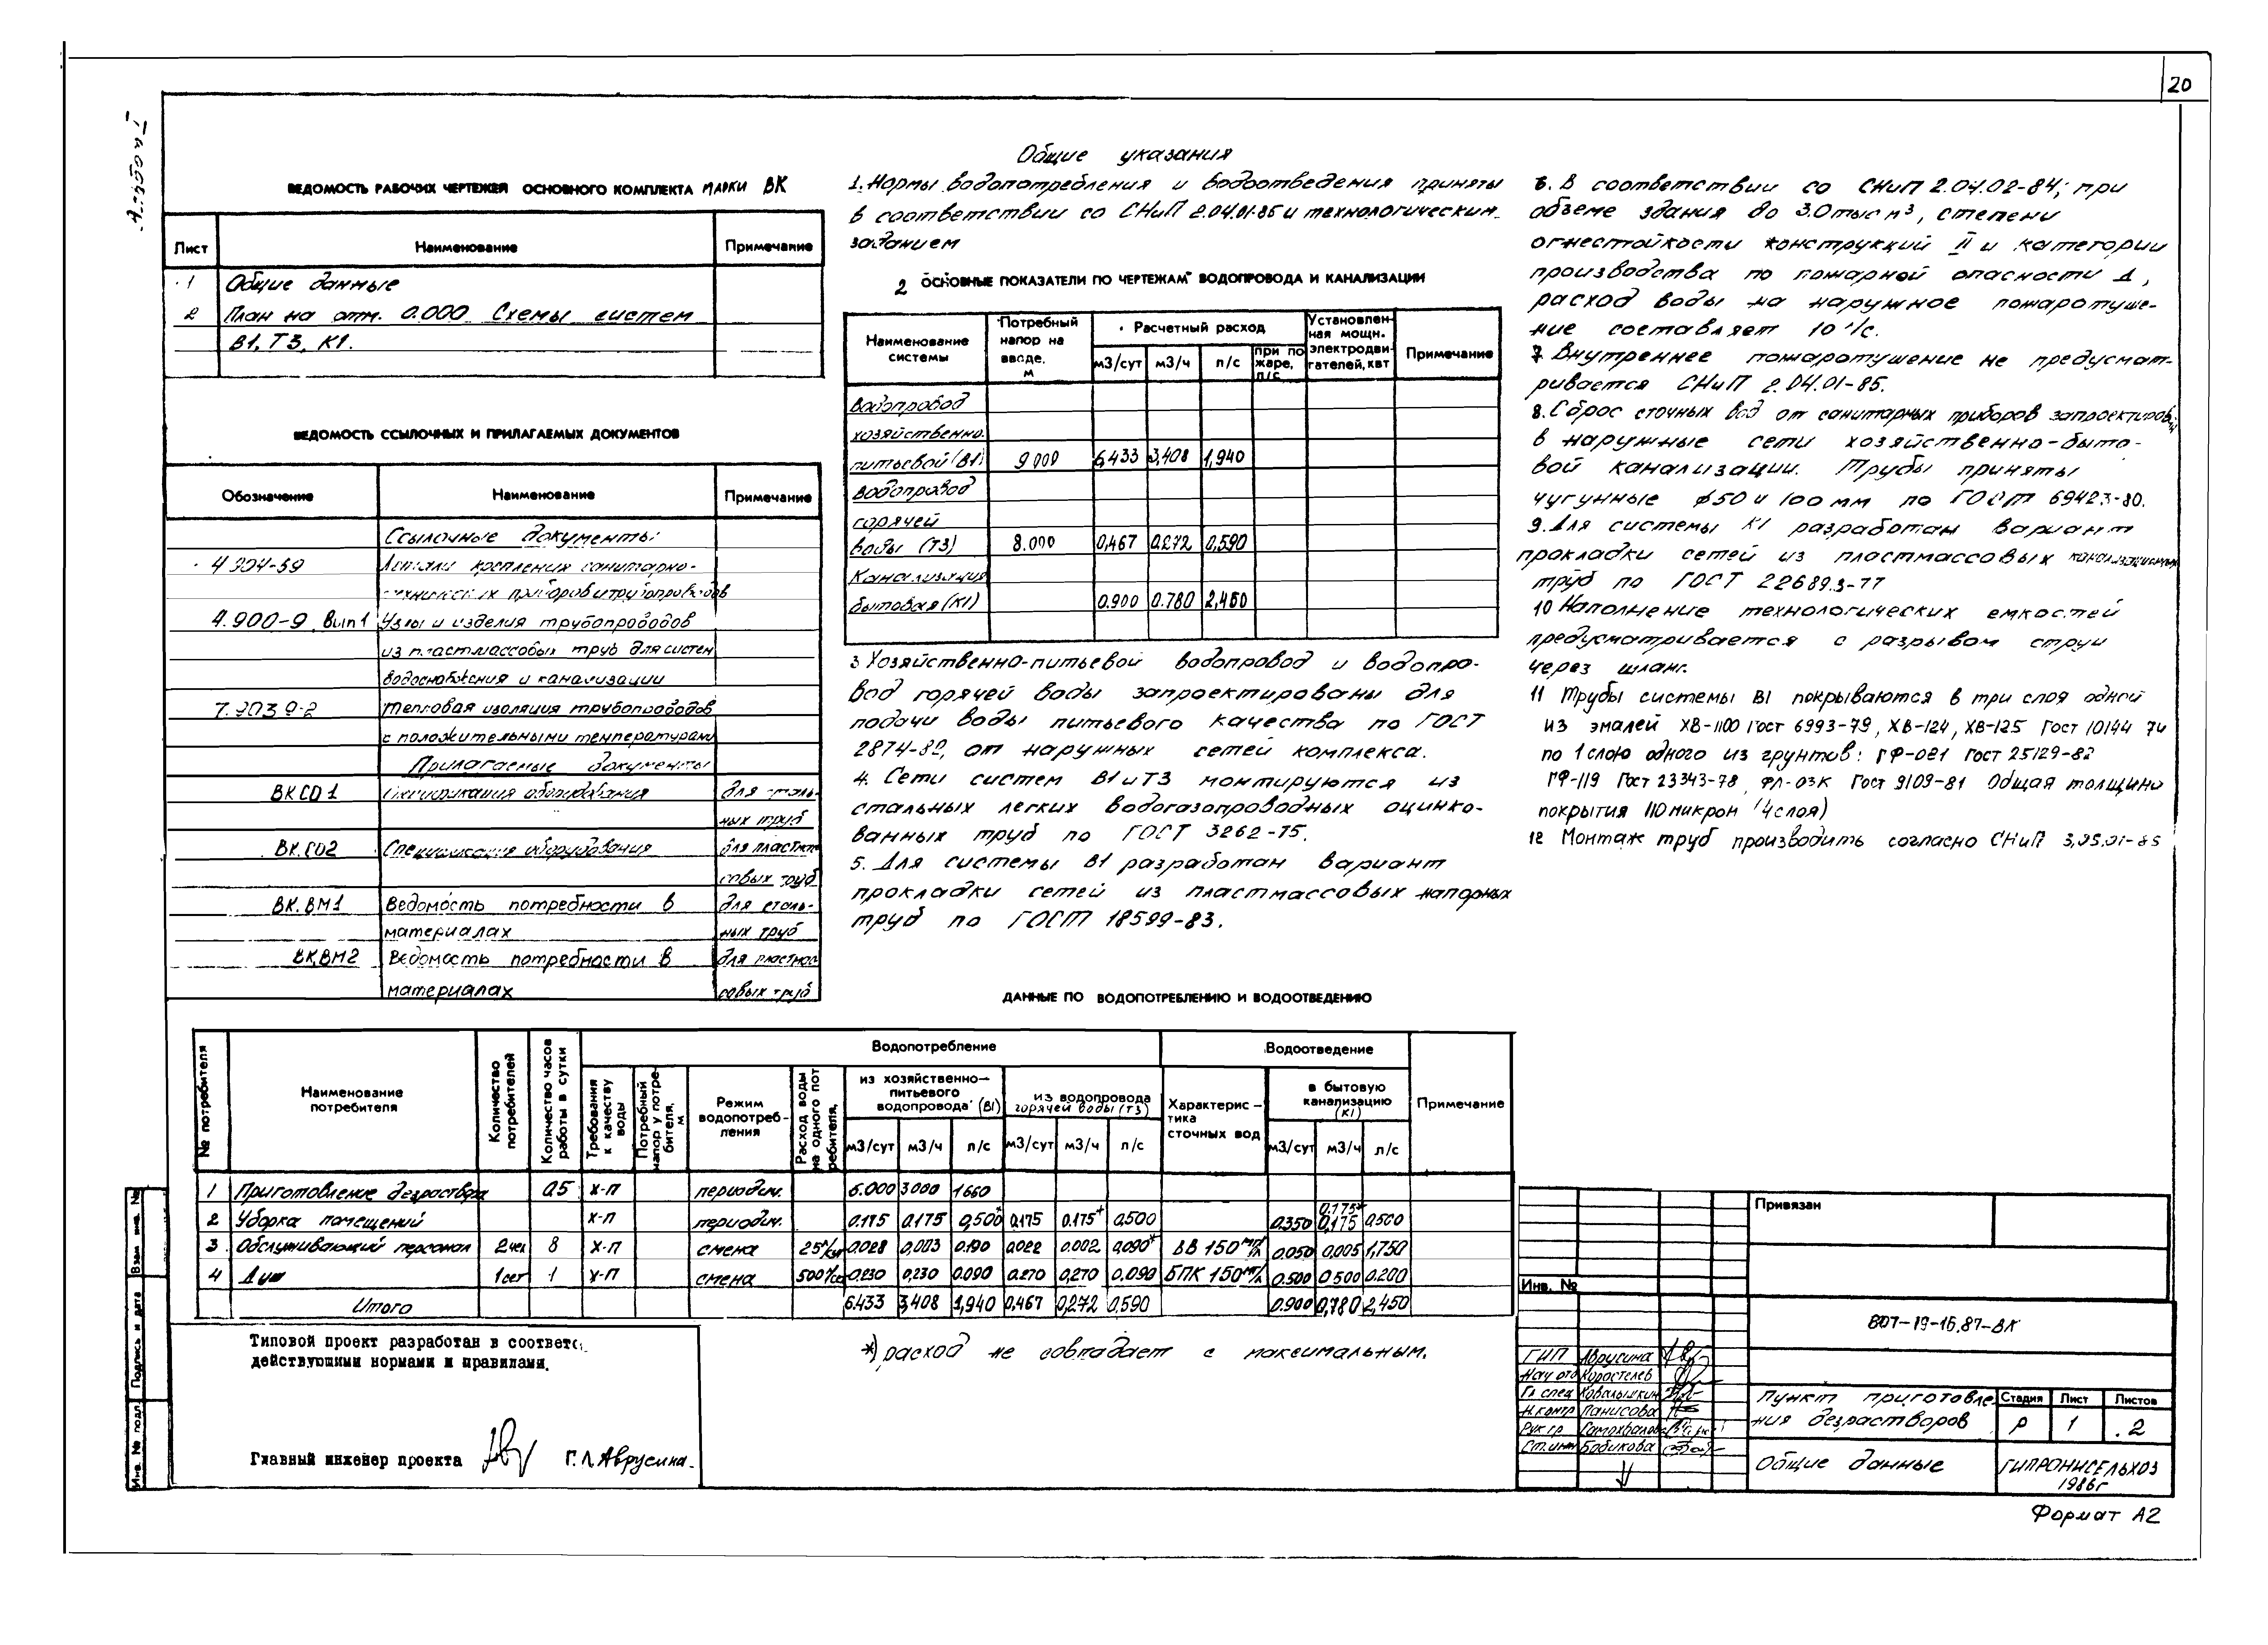 20
ВЕДОМОСТЬ РАБОЧИХ ЧЕРТЕЖЕЙ ОСНОВНОГО КОМПЛЕКТА МАРКИ ВК
Лист Наименование Примечание
1 Общие данные
2 План на отм. 0.000 Схемы систем
В1, Т3, К1.
ВЕДОМОСТЬ ССЫЛОЧНЫХ И ПРИЛАГАЕМЫХ ДОКУМЕНТОВ
Обозначение Наименование Примечание
Ссылочные документы
4.904-69 Детали крепления санитарно-
технических приборов и трубопроводов
4.900-9 Вып1 Узлы и изделия трубопроводов
из пластмассовых труб для систем
водоснабжения и канализации
7.903 9-2 Тепловая изоляция трубопроводов
с положительными температурами
Прилагаемые документы
ВК СО1 Спецификация оборудования для сталь-
ных труб
ВК.СО2 Спецификация оборудования для пластмас
совых труб
ВК.ВМ1 Ведомость потребности в для сталь-
материалах ных труб
ВК.ВМ2 Ведомость потребности в для пластмас
материалах совых труб
Общие указания
1. Нормы водопотребления и водоотведения приняты
в соответствии со СНиП 2.04.01-85 и технологическим
заданием
2 ОСНОВНЫЕ ПОКАЗАТЕЛИ ПО ЧЕРТЕЖАМ ВОДОПРОВОДА И КАНАЛИЗАЦИИ
Наименование системы Потребный напор на вводе, м Расчетный расход Установлен-ная мощн. электродви-гателей, квт Примечание
м3/сут м3/ч л/с при по жаре, л/с
Водопровод
хозяйственно.
питьевой (В1) 9.000 6,433 3,408 1,940
Водопровод
горячей
воды (Т3) 8.000 0,467 0.272 0,590
Канализация
бытовая (К1) 0.900 0.780 2,450
3 Хозяйственно-питьевой водопровод и водопро-
вод горячей воды запроектированы для
подачи воды питьевого качества по ГОСТ
2874-82, от наружных сетей комплекса.
4. Сети систем В1 и Т3 монтируются из
стальных легких водогазопроводных оцинко-
ванных труб по ГОСТ 3262-75.
5. Для системы В1 разработан вариант
прокладки сетей из пластмассовых напорных
труб по ГОСТ 18599-83.
6. В соответствии со СНиП 2.04.02-84; при
объеме здания до 3.0 тыс м³, степени
огнестойкости конструкций II и категории
производства по пожарной опасности Д,
расход воды на наружное пожаротуше-
ние составляет 10 л/с.
7. Внутреннее пожаротушение не предусмат-
ривается СНиП 2.04.01-85.
8. Сброс сточных вод от санитарных приборов запроектирован
в наружные сети хозяйственно-быто-
вой канализации. Трубы приняты
чугунные ø50 и 100 мм по ГОСТ 6942.3-80.
9. Для системы К1 разработан вариант
прокладки сетей из пластмассовых канализационных
труб по ГОСТ 22689.3-77
10 Наполнение технологических емкостей
предусматривается с разрывом струи
через шланг.
11 Трубы системы В1 покрываются в три слоя одной
из эмалей ХВ-1100 Гост 6993-79, ХВ-124, ХВ-125 Гост 10144 74
по 1 слою одного из грунтов: ГФ-021 гост 25129-82
ГФ-119 Гост 23343-78, ФЛ-03К Гост 9109-81 Общая толщина
покрытия 110 микрон (4 слоя)
12 Монтаж труб производить согласно СНиП 3.05.01-85
ДАННЫЕ ПО ВОДОПОТРЕБЛЕНИЮ И ВОДООТВЕДЕНИЮ
№ потребителя Наименование потребителя Количество потребителей Количество часов работы в сутки Водопотребление Водоотведение Примечание
Требования к качеству воды Потребный напор у потре-бителя, м Режим водопотреб-ления Расход воды на одного пот ребителя, из хозяйственно-питьевого водопровода (В1) из водопровода горячей воды (Т3) Характерис-тика сточных вод в бытовую канализацию (К1)
м3/сут м3/ч л/с м3/сут м3/ч л/с м3/сут м3/ч л/с
1 Приготовление дезраствора 0.5 х-п периодич. 6.000 3000 1660
2 Уборка помещений х-п периодич. 0.175 0.175 0,500* 0.175 0.175* 0,500 0.350 0.175* 0.175 0.500
3 Обслуживающий персонал 2 чел 8 х-п смена 25 0.028 0,003 0.190 0.022 0.002 0,090* ВВ 150 мг/л 0.050 0,005 1,750
4 Душ 1 сет 1 х-п смена 500 0.230 0,230 0.090 0.270 0,270 0.090 БПК 150 мг/л 0.500 0.500 0.200
Итого 6.433 3,408 1,940 0,467 0,272 0,590 0.900 0,780 2,450
*) расход не совпадает с максимальным.
Типовой проект разработан в соответс
действующими нормами и правилами.
Главный инженер проекта Г.Л. Аврусина.
Взам инв. №
Подпись и дата
Инв. № подл.
Привязан
Инв. №
807-19-16.87-ВК
ГИП Аврусина
Нач отд Коростелев
Гл спец Ковалышкин
Н.контр Панисова
Рук гр Самохвалова
Ст.инж Бобикова
Пункт приготовле-
ния дезрастворов
Стадия Лист Листов
Р 1 2
Общие данные
ГИПРОНИСЕЛЬХОЗ
1986г
Формат А2